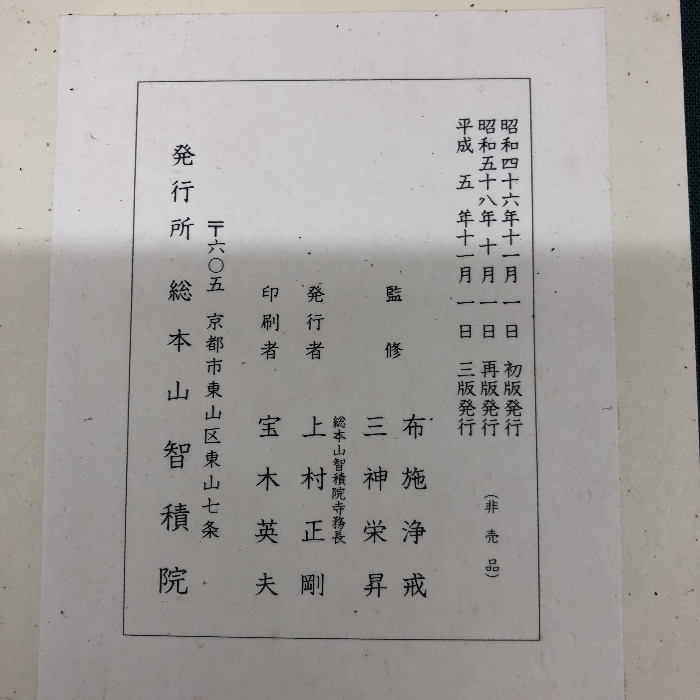 昭和四十六年十一月一日　初版発行
昭和五十八年十月一日　再版発行
平成五年十一月一日　三版発行
（非売品）
監修　布施浄戒
三神栄昇
総本山智積院寺務長
発行者　上村正剛
印刷者　宝木英夫
〒六〇五　京都市東山区東山七条
発行所　総本山智積院